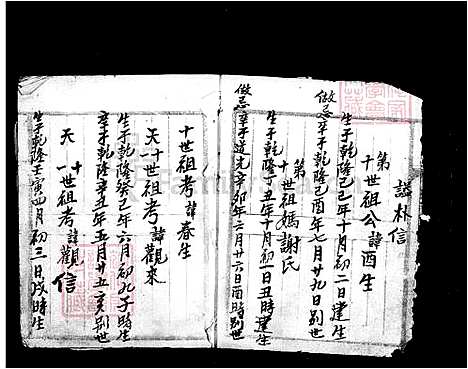 諡朴信
第十世祖公諱酉生
生于乾隆己巳年十月初二日建生
做忌卒于乾隆己酉年七月廿九日別世
第十世祖媽謝氏
生于乾隆丁丑年十月初一日丑時建生
做忌卒于道光辛卯年六月廿六日酉時別世
十世祖考諱春生
天十一世祖考諱觀來
生于乾隆癸巳年六月初九子時生
卒于乾隆辛丑年五月廿五亥別世
天十一世祖考諱觀信
生于乾隆壬寅四月初三日戌時生